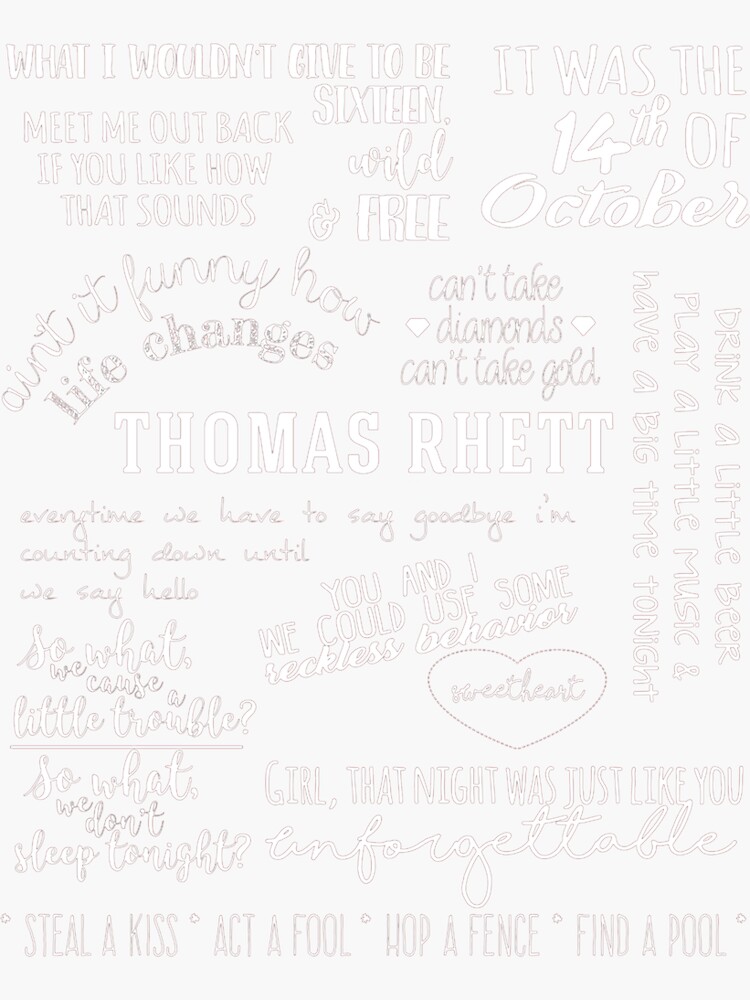 WHAT I WOULDN'T GIVE TO BE
SIXTEEN,
wild
& FREE
IT WAS THE
14th OF
October
MEET ME OUT BACK
IF YOU LIKE HOW
THAT SOUNDS
ain't it funny how
life changes
can't take
diamonds
can't take gold
DRINK A LITTLE BEER
PLAY A LITTLE MUSIC &
HAVE A BIG TIME TONIGHT
THOMAS RHETT
everytime we have to say goodbye i'm
counting down until
we say hello
YOU AND I
WE COULD USE SOME
reckless behavior
sweetheart
So what,
we cause a
little trouble?
So what,
we don't
sleep tonight?
GIRL, THAT NIGHT WAS JUST LIKE YOU
unforgettable
* STEAL A KISS * ACT A FOOL * HOP A FENCE * FIND A POOL *